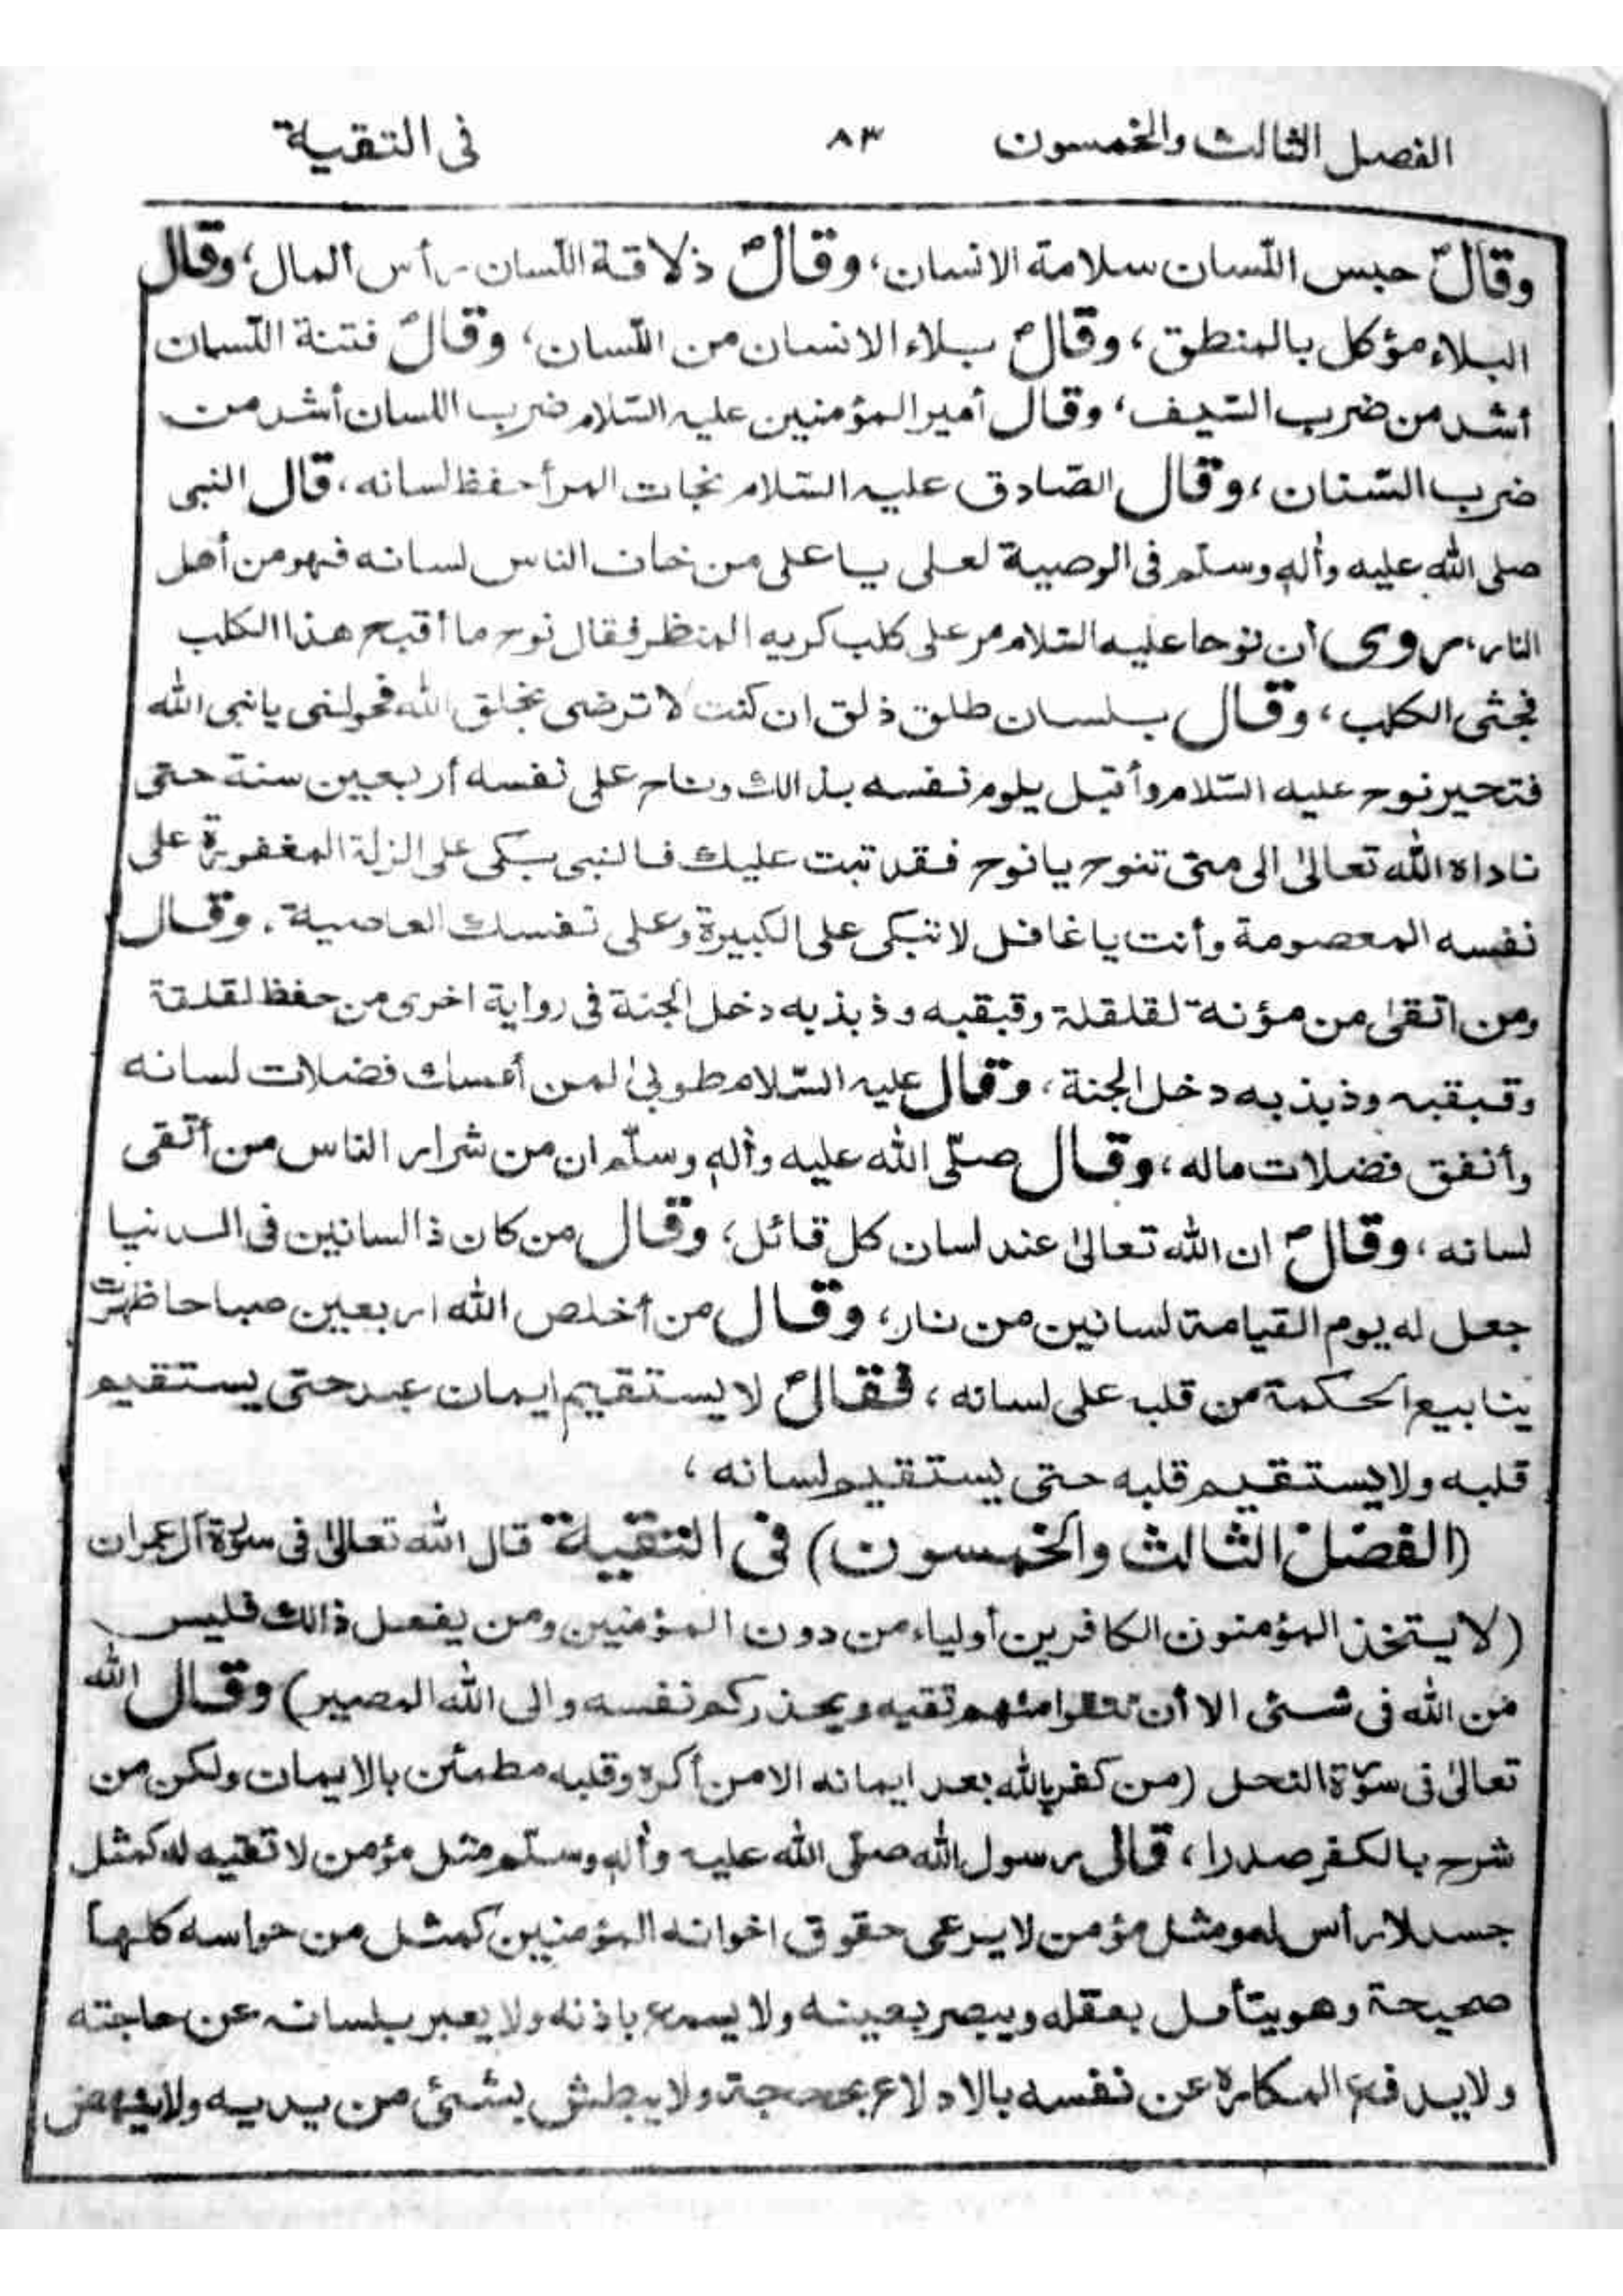 الفصل الثالث والخمسون ٨٣ فى التقية
وقالؐ حبس اللّسان سلامة الانسان، وقالؐ ذلاقة اللّسان رأس المال، وقال
البلاء مؤكل بالمنطق، وقالؐ بلاء الانسان من اللّسان، وقالؐ فتنة اللّسان
أشد من ضرب السّيف، وقال أمير المؤمنين عليه السّلام ضرب اللسان أشد من
ضرب السّنان، وقال الصّادق عليه السّلام نجات المرأ حفظ لسانه، قال النبى
صلى الله عليه وأله وسلّم فى الوصية لعلى يا على من خاف الناس لسانه فهو من أهل
النار، روى أن نوحا عليه السّلام مر على كلب كريه المنظر فقال نوح ما أقبح هذا الكلب
فجثى الكلب، وقال بلسان طلق ذلق ان كنت لا ترضى بخلق الله فحولنى يا نبى الله
فتحير نوح عليه السّلام وأقبل يلوم نفسه بذالك وناح على نفسه أربعين سنة حتى
ناداه الله تعالىٰ الى متى تنوح يا نوح فقد تبت عليك فالنبى بكى على الزلة المغفورة على
نفسه المعصومة وأنت يا غافل لا تبكى على الكبيرة وعلى نفسك العاصية، وقال
ومن اتقىٰ من مؤنة لقلقلة وقبقبه وذبذبه دخل الجنة فى رواية اخرى من حفظ لقلقة
وقبقبه وذبذبه دخل الجنة، وقال عليه السّلام طوبىٰ لمن أمسك فضلات لسانه
وأنفق فضلات ماله، وقال صلّى الله عليه وأله وسلّم ان من شرار الناس من أتقى
لسانه، وقالؐ ان الله تعالىٰ عند لسان كل قائل، وقال من كان ذا لسانين فى الدنيا
جعل له يوم القيامة لسانين من نار، وقال من أخلص الله اربعين صباحا ظهرت
ينابيع الحكمة من قلبه على لسانه، فقالؐ لا يستقيم ايمان عبد حتى يستقيم
قلبه ولا يستقيم قلبه حتى يستقيم لسانه،
(الفصل الثالث والخمسون) فى التقية قال الله تعالىٰ فى سورة آل عمران
(لا يتخذ المؤمنون الكافرين أولياء من دون المؤمنين ومن يفعل ذالك فليس
من الله فى شئى الا أن تتقوا منهم تقيه ويحذركم نفسه والى الله المصير) وقال الله
تعالىٰ فى سورة النحل (من كفر بالله بعد ايمانه الا من أكره وقلبه مطمئن بالايمان ولكن من
شرح بالكفر صدرا، قال رسول الله صلّى الله عليه وأله وسلّم مثل مؤمن لا تقيه له كمثل
جسد لا رأس له ومثل مؤمن لا يرعى حقوق اخوانه المؤمنين كمثل من حواسه كلها
صحيحة وهو يتأمل بعقله ويبصر بعينه ولا يسمع باذنه ولا يعبر بلسانه عن حاجته
ولا يدفع المكاره عن نفسه بالادلاء بحجة ولا يبطش بشئى من يديه ولا ينهض